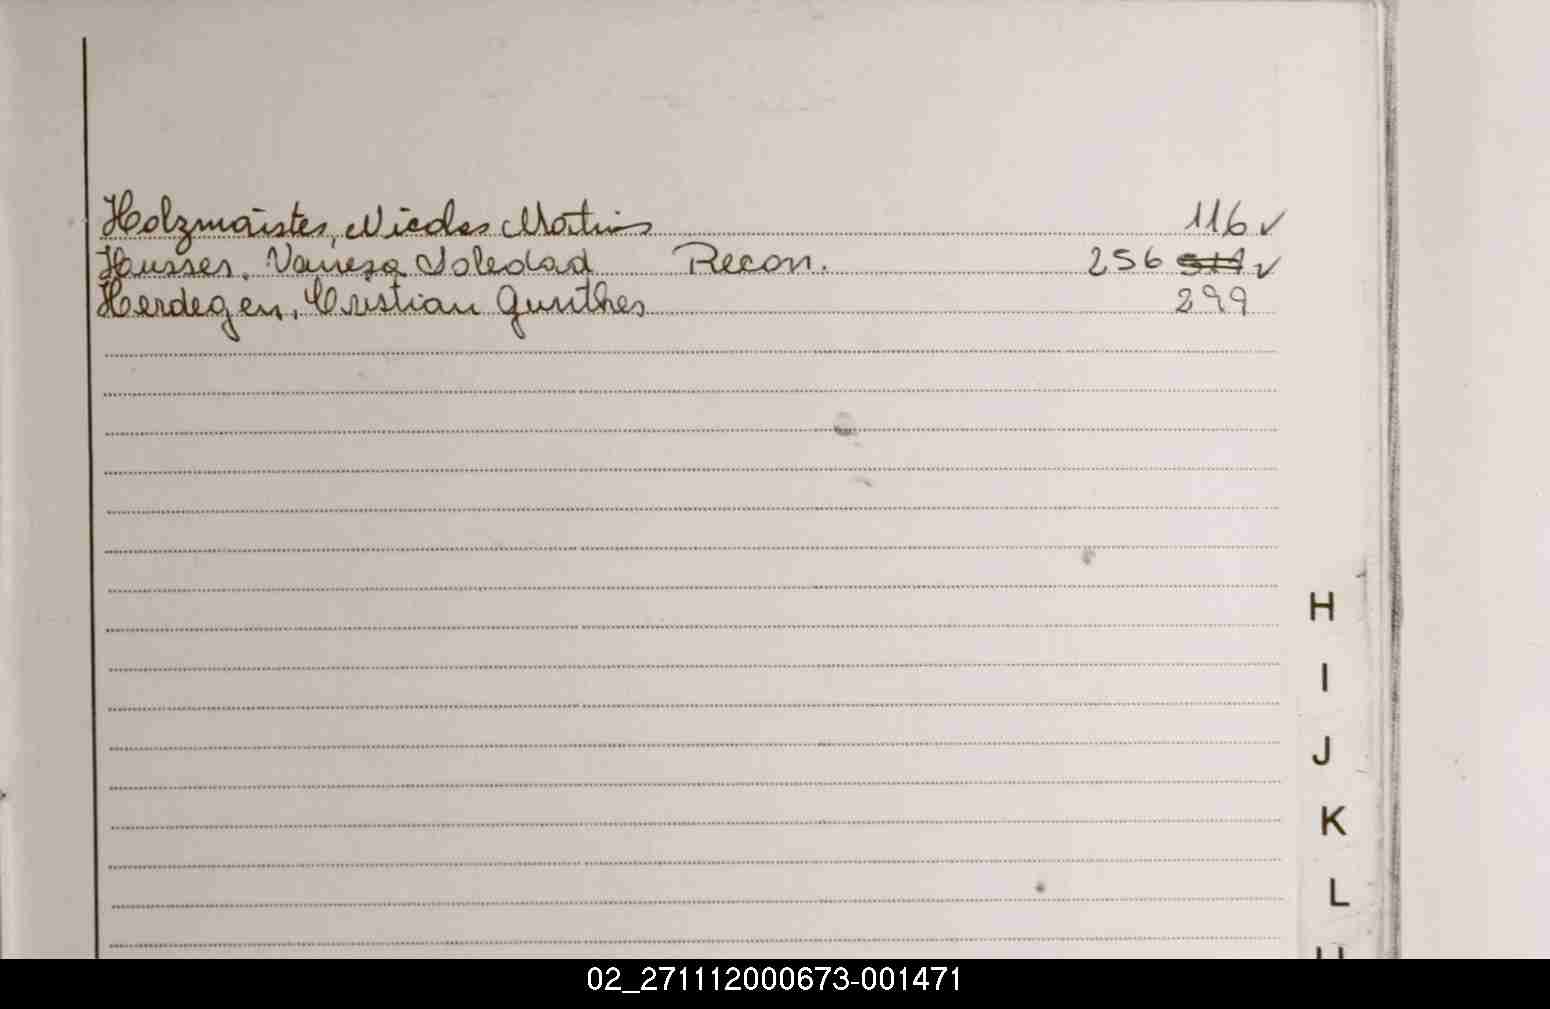 Holzmaister, Nicolas Martin 116 ✓
Husser, Vanesa Soledad Recon. 256 ✓
Herdegen, Cristian Gunther 299
H
I
J
K
L
02_271112000673-001471